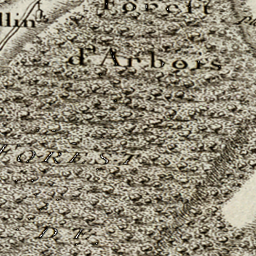 llin^t
Forest
d'Arbors
FOREST
DE